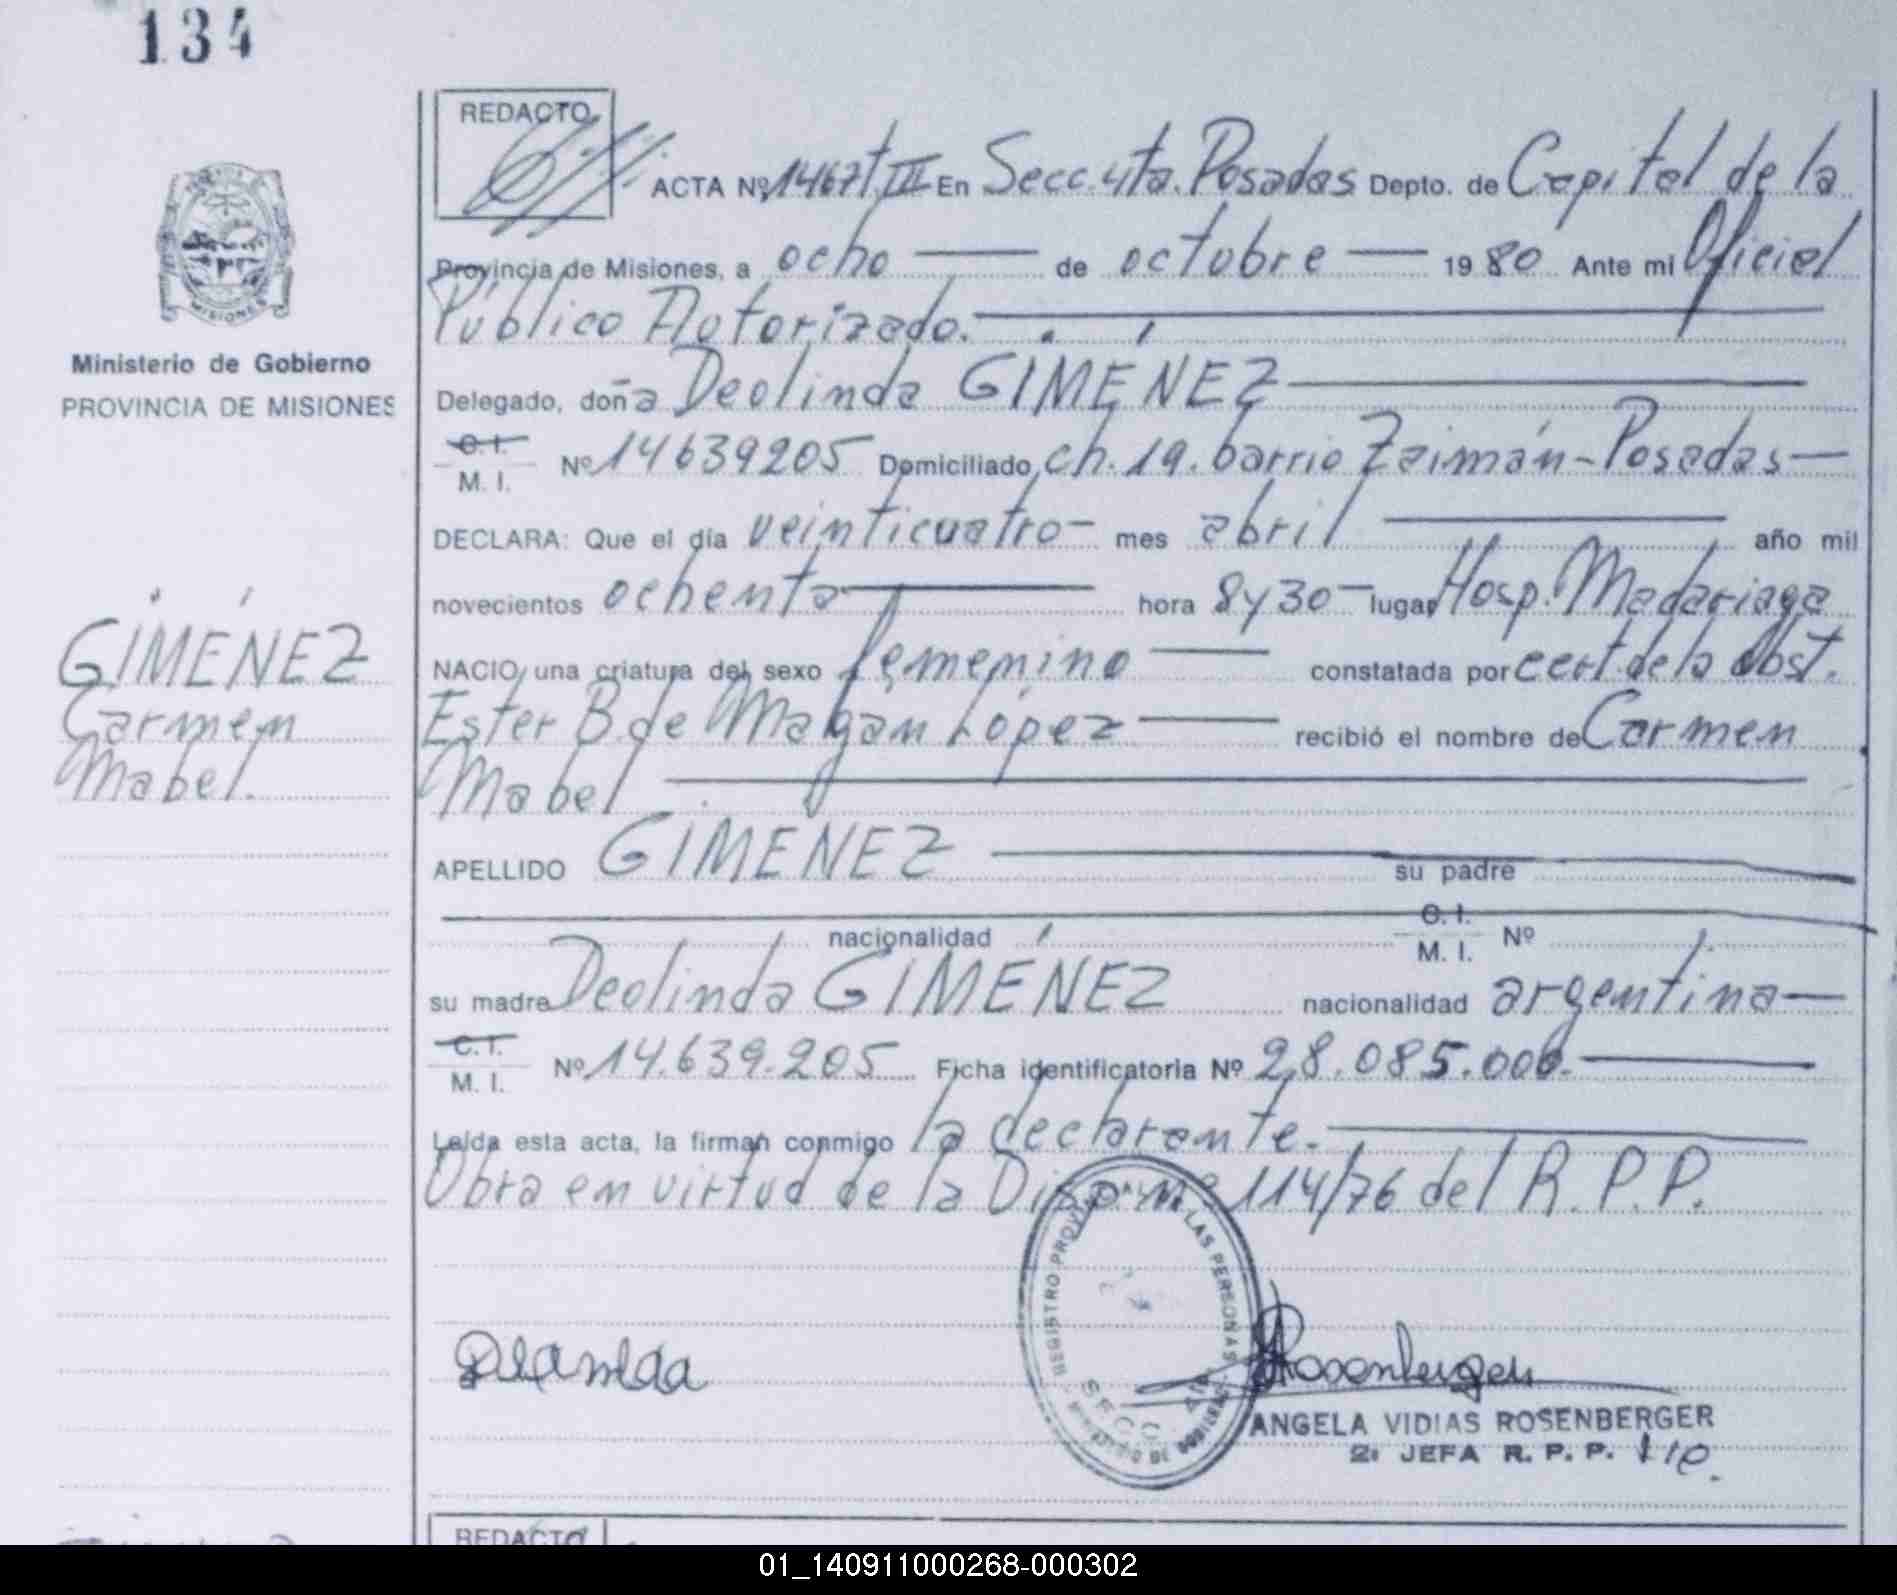 134
REDACTO
ACTA Nº 1467 t. III En Secc. 4ta. Posadas Depto. de Capital de la
Provincia de Misiones, a ocho de octubre 1980 Ante mi Oficial
Público Autorizado.
Delegado, doña Deolinda GIMÉNEZ
C. I.
M. I. Nº 14639205 Domiciliado ch. 19. barrio Zaimán - Posadas
DECLARA: Que el día veinticuatro mes abril año mil
novecientos ochenta hora 8 y 30 lugar Hosp. Madariaga
NACIO una criatura del sexo femenino constatada por cert. de la obst.
Ester B. de Malgan López recibió el nombre de Carmen
Mabel
APELLIDO GIMENEZ su padre
nacionalidad C. I. M. I. Nº
su madre Deolinda GIMÉNEZ nacionalidad argentina
C. I.
M. I. Nº 14.639.205 Ficha identificatoria Nº 28.085.006.
Leída esta acta, la firman conmigo la declarante.
Obra en virtud de la Disp. Nº 114/76 del R. P. P.
MISIONES
Ministerio de Gobierno
PROVINCIA DE MISIONES
GIMÉNEZ
Carmen
Mabel.
REGISTRO PROVINCIAL DE LAS PERSONAS
SECC.
Rosenberger
ANGELA VIDIAS ROSENBERGER
2ª JEFA R. P. P.
REDACTO
01_140911000268-000302